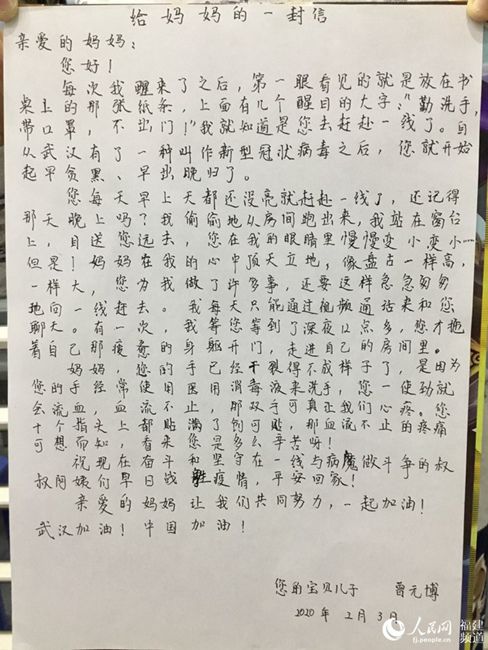 给妈妈的一封信
亲爱的妈妈：
您好！
每次我醒来了之后，第一眼看见的就是放在书
桌上的那张纸条，上面有几个醒目的大字：“勤洗手，
带口罩，不出门！”我就知道是您去赶赴一线了。自
从武汉有了一种叫作新型冠状病毒之后，您就开始
起早贪黑、早出晚归了。
您每天早上天都还没亮就赶赴一线了，还记得
那天晚上吗？我偷偷地从房间跑出来，我站在窗台
上，目送您远去，您在我的眼睛里慢慢变小变小……
但是！妈妈在我的心中顶天立地，像盘古一样高，
一样大，您为我做了许多事，还要这样急急匆匆
地向一线赶去。我每天只能通过视频通话来和您
聊天。有一次，我等您等到了深夜12点多，您才拖
着自己那疲惫的身躯开门，走进自己的房间里。
妈妈，您的手已经干裂得不成样子了，是因为
您的手经常使用医用消毒液来洗手，您一使劲就
会流血，血流不止，那双手可真让我们心疼。您
十个指头上都贴满了创可贴，那血流不止的疼痛
可想而知，看来您是多么辛苦呀！
祝现在奋斗和坚守在一线与病魔做斗争的叔
叔阿姨们早日战胜疫情，平安回家！
亲爱的妈妈让我们共同努力，一起加油！
武汉加油！中国加油！
您的宝贝儿子 曾元博
2020年2月3日
人民网 福建频道
fj.people.cn